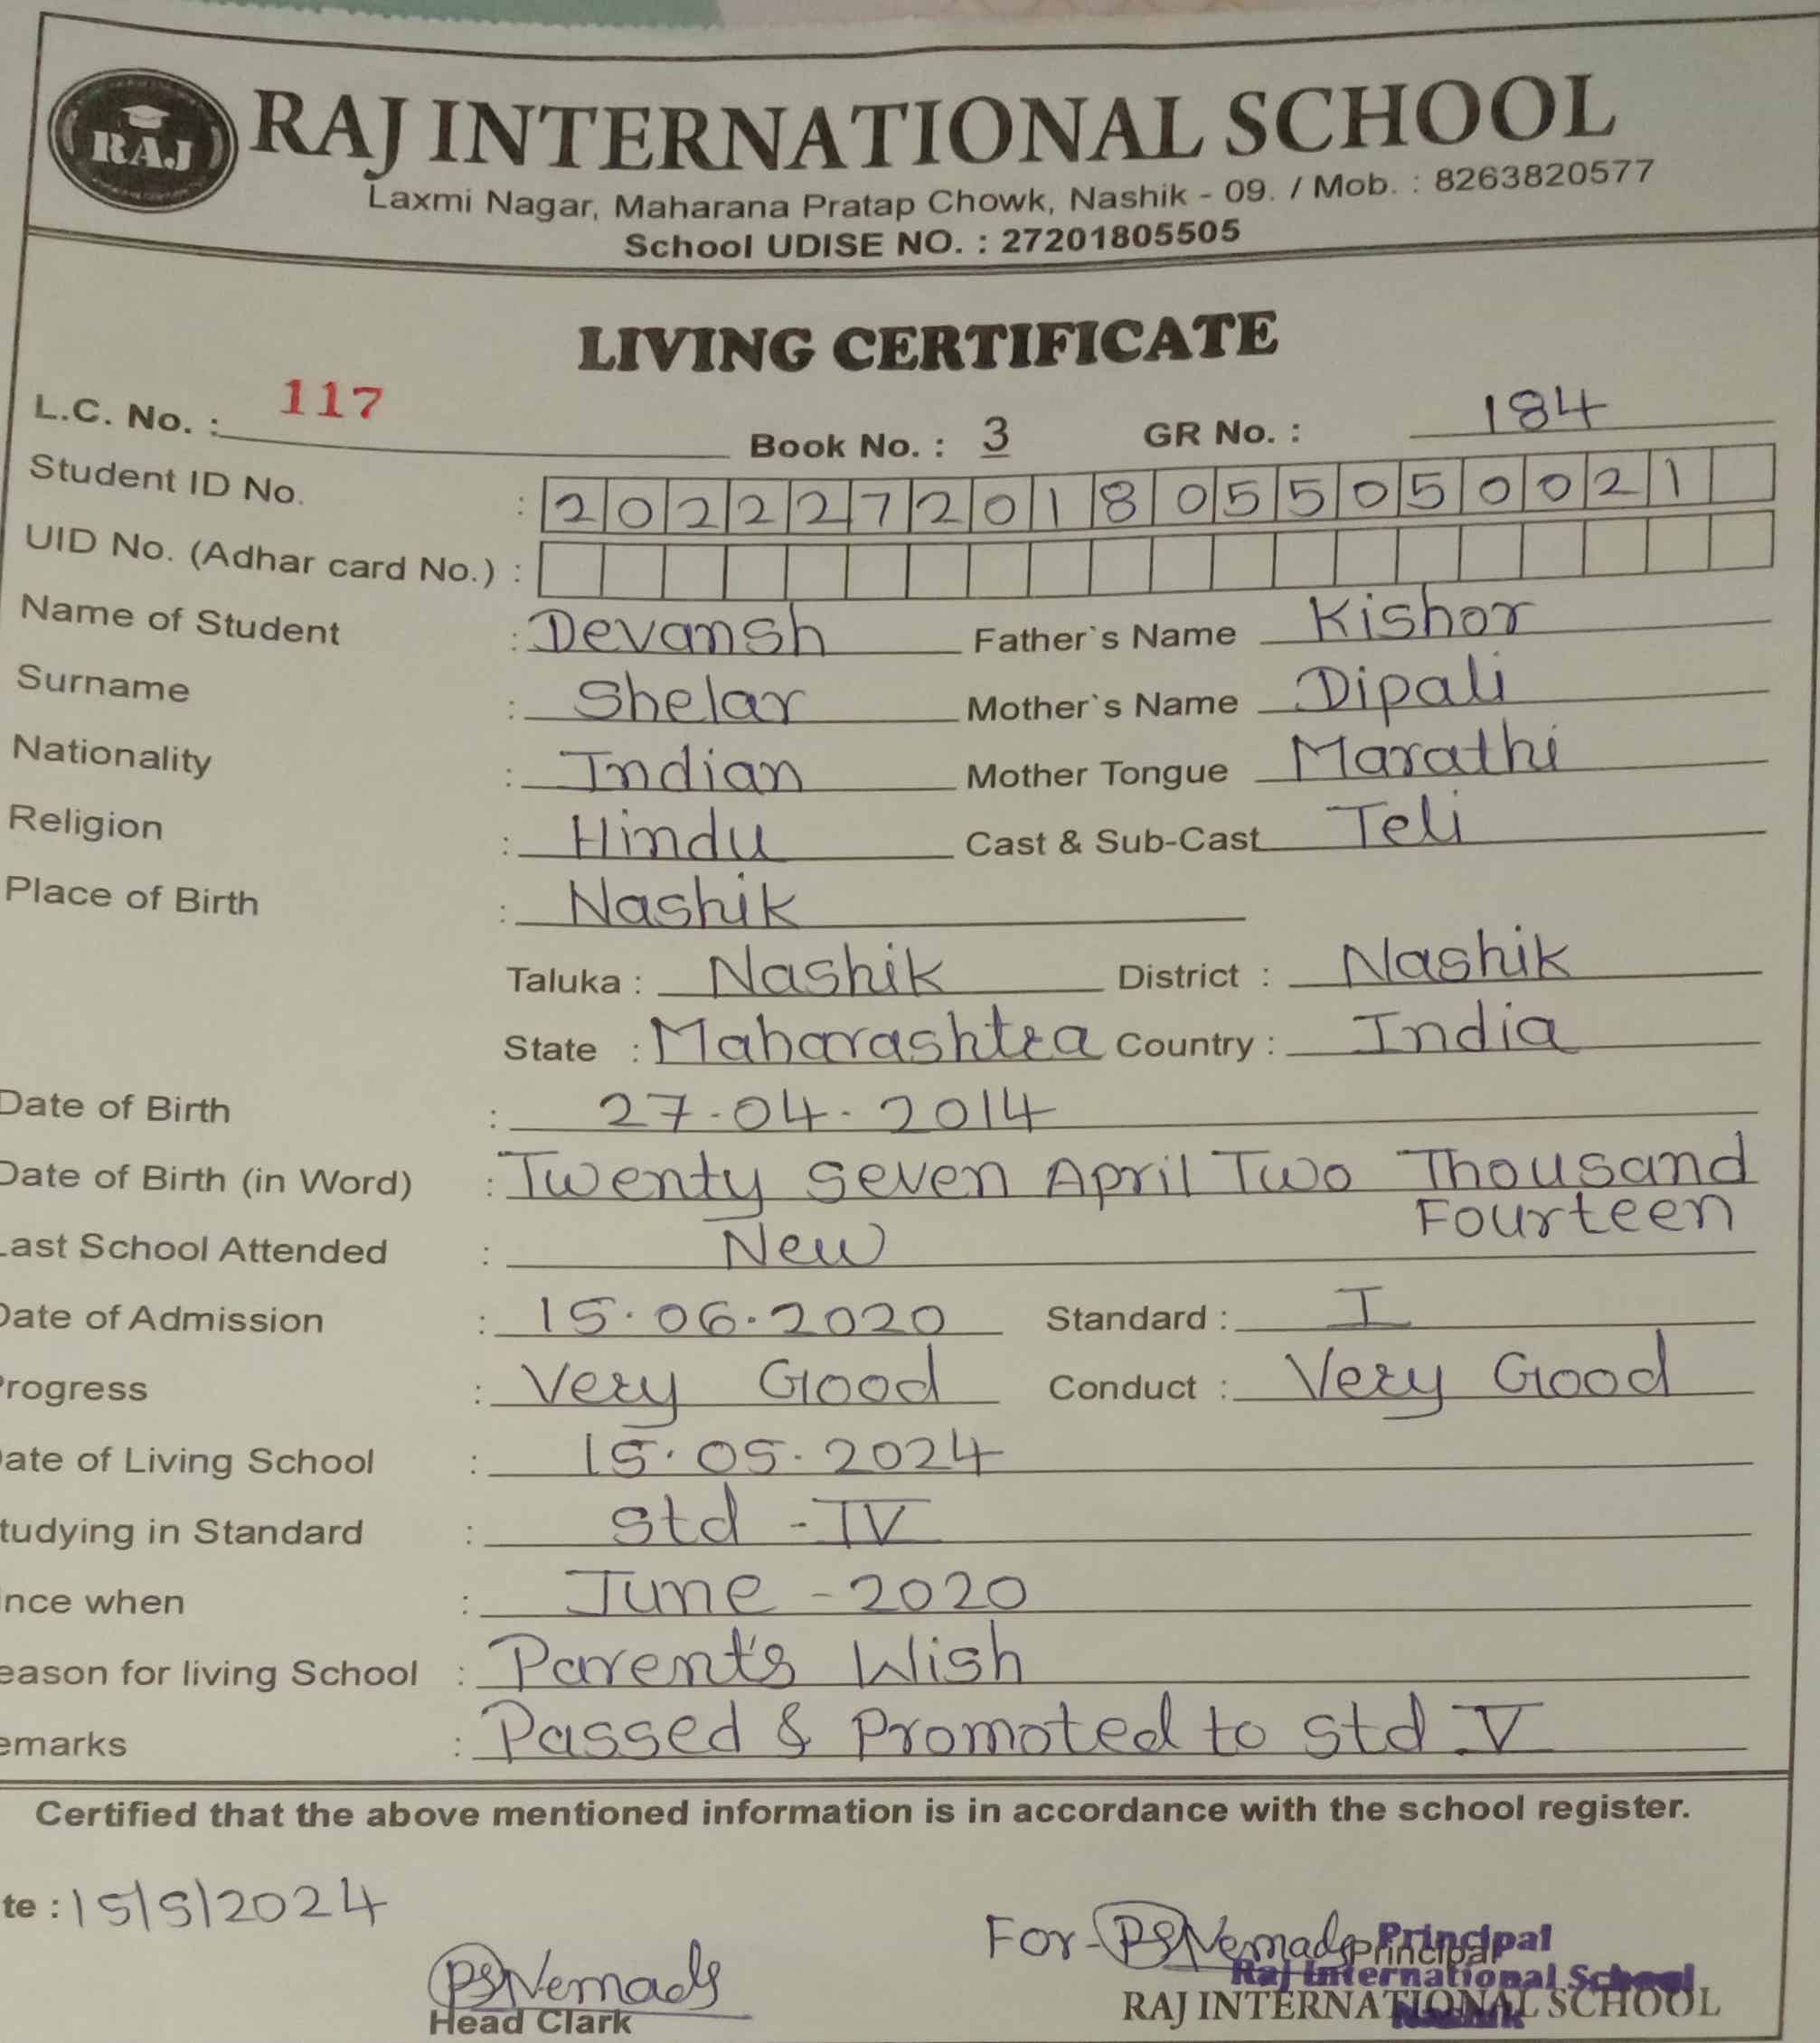 RAJ
RAJ INTERNATIONAL SCHOOL
Laxmi Nagar, Maharana Pratap Chowk, Nashik - 09. / Mob. : 8263820577
School UDISE NO. : 27201805505
LIVING CERTIFICATE
L.C. No. : 117 Book No. : 3 GR No. : 184
Student ID No. : 2022272018055050021
UID No. (Adhar card No.) :
Name of Student : Devansh Father`s Name Kishor
Surname : Shelar Mother`s Name Dipali
Nationality : Indian Mother Tongue Marathi
Religion : Hindu Cast & Sub-Cast Teli
Place of Birth : Nashik
Taluka : Nashik District : Nashik
State : Maharashtra Country : India
Date of Birth : 27.04.2014
Date of Birth (in Word) : Twenty seven April Two Thousand
Fourteen
Last School Attended : New
Date of Admission : 15.06.2020 Standard : I
Progress : Very Good Conduct : Very Good
ate of Living School : 15.05.2024
tudying in Standard : std - IV
ince when : June - 2020
eason for living School : Parent's Wish
emarks : Passed & Promoted to std V
Certified that the above mentioned information is in accordance with the school register.
te : 15/5/2024
PSNemade
Head Clark
For- PSNemade Principal
Principal
Raj International School
RAJ INTERNATIONAL SCHOOL
Nashik